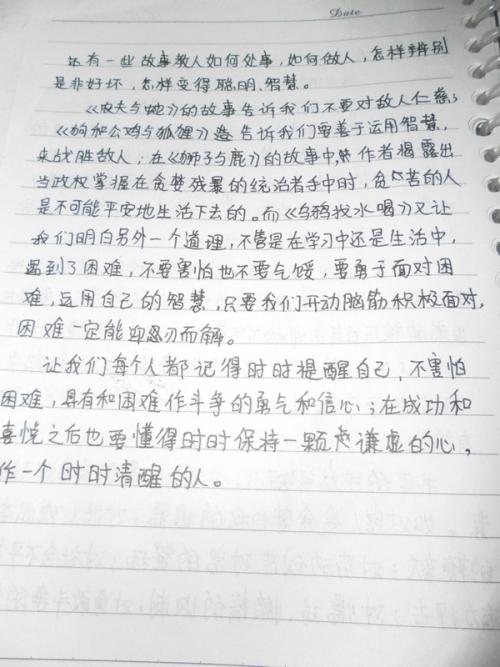 Date
还有一些故事教人如何处事,如何做人,怎样辨别
是非好坏,怎样变得聪明、智慧。
《农夫与蛇》的故事告诉我们不要对敌人仁慈;
《狗和公鸡与狐狸》告诉我们要善于运用智慧,
来战胜敌人;在《狮子与鹿》的故事中,作者揭露出
当政权掌握在贪婪残暴的统治者手中时,贫苦的人
是不可能平安地生活下去的。而《乌鸦找水喝》又让
我们明白另外一个道理,不管是在学习中还是生活中,
遇到了困难,不要害怕也不要气馁,要勇于面对困
难,运用自己的智慧,只要我们开动脑筋积极面对,
困难一定能迎忍刃而解。
让我们每个人都记得时时提醒自己,不害怕
困难,具有和困难作斗争的勇气和信心;在成功和
喜悦之后也要懂得时时保持一颗谦虚的心,
作一个时时清醒的人。